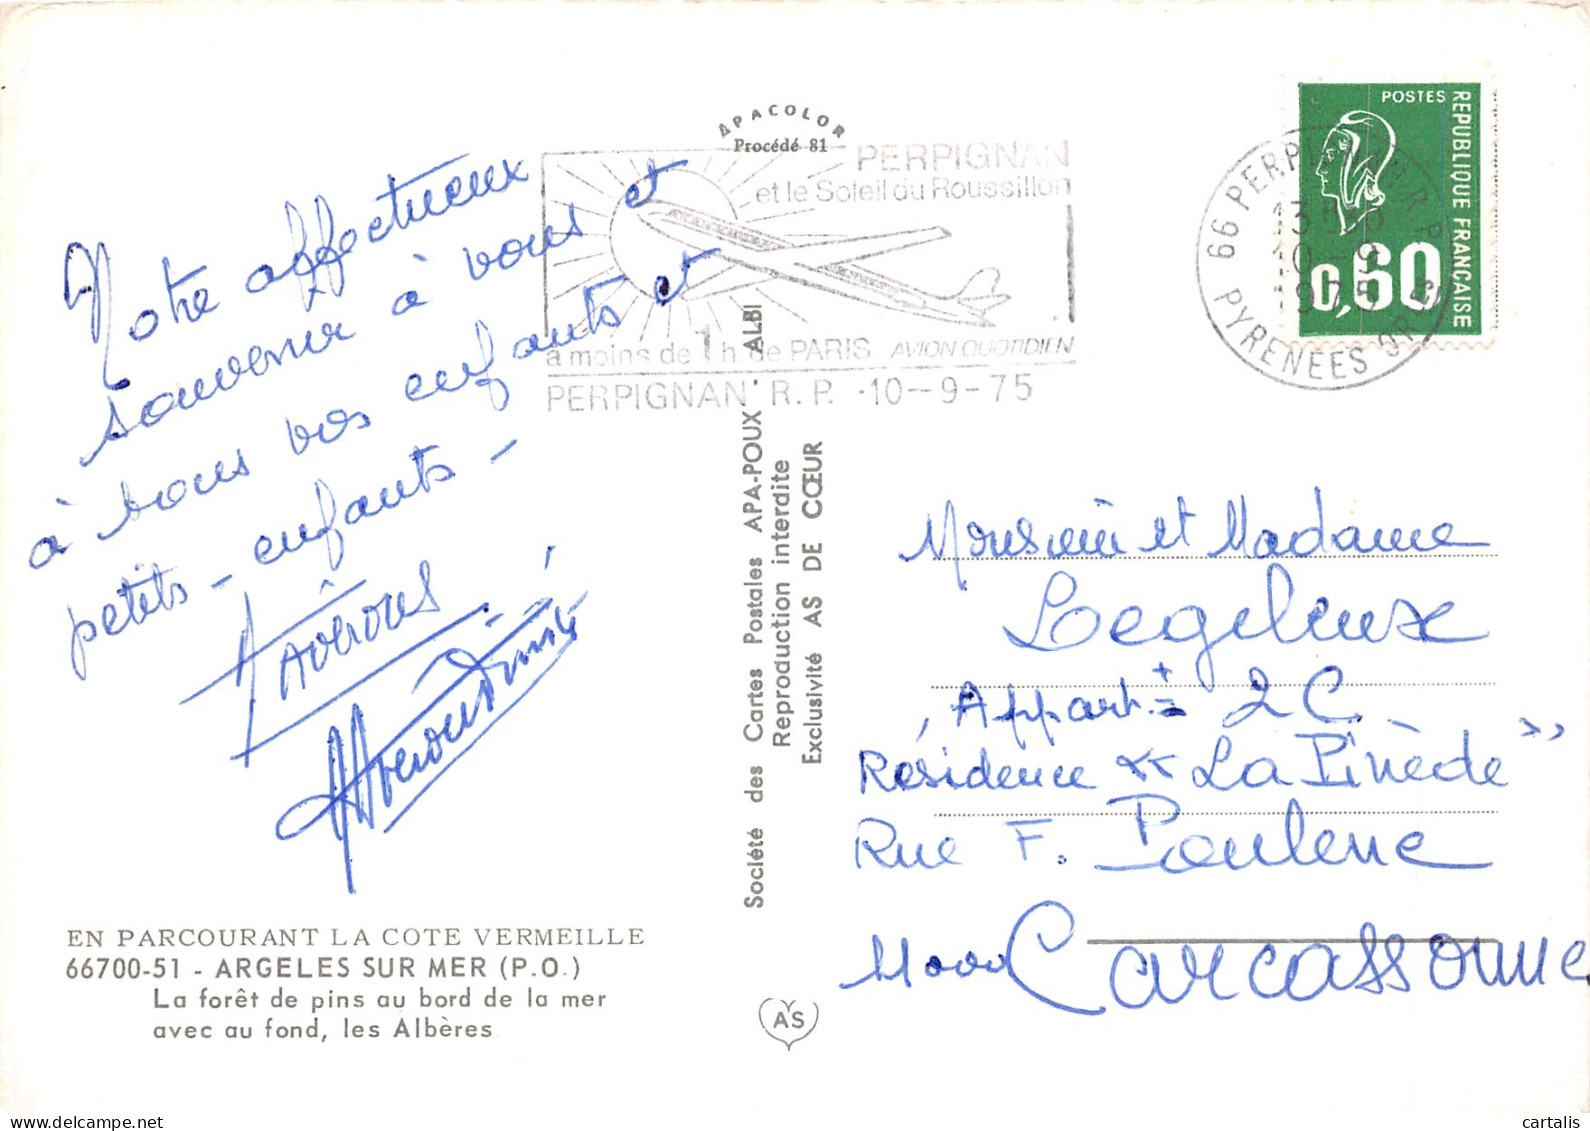 APACOLOR
Procédé 81
PERPIGNAN
et le Soleil du Roussillon
à moins de 1 h. de PARIS AVION QUOTIDIEN
PERPIGNAN R.P. -10-9-75
66 PERPIGNAN R.P.
13H
10-9
1975
PYRENEES OR.
POSTES
REPUBLIQUE FRANÇAISE
0,60
Notre affectueux
souvenir à vous et
à tous vos enfants et
petits-enfants-
Société des Cartes Postales APA-POUX . ALBI
Reproduction interdite
Exclusivité AS DE CŒUR
Monsieur et Madame
Legeleux
Appart. 2C
Résidence "La Pinède"
Rue F. Poulenc
11000 Carcassonne
EN PARCOURANT LA COTE VERMEILLE
66700-51 - ARGELES SUR MER (P.O.)
La forêt de pins au bord de la mer
avec au fond, les Albères
AS
https://www.delcampe.net
cartalis